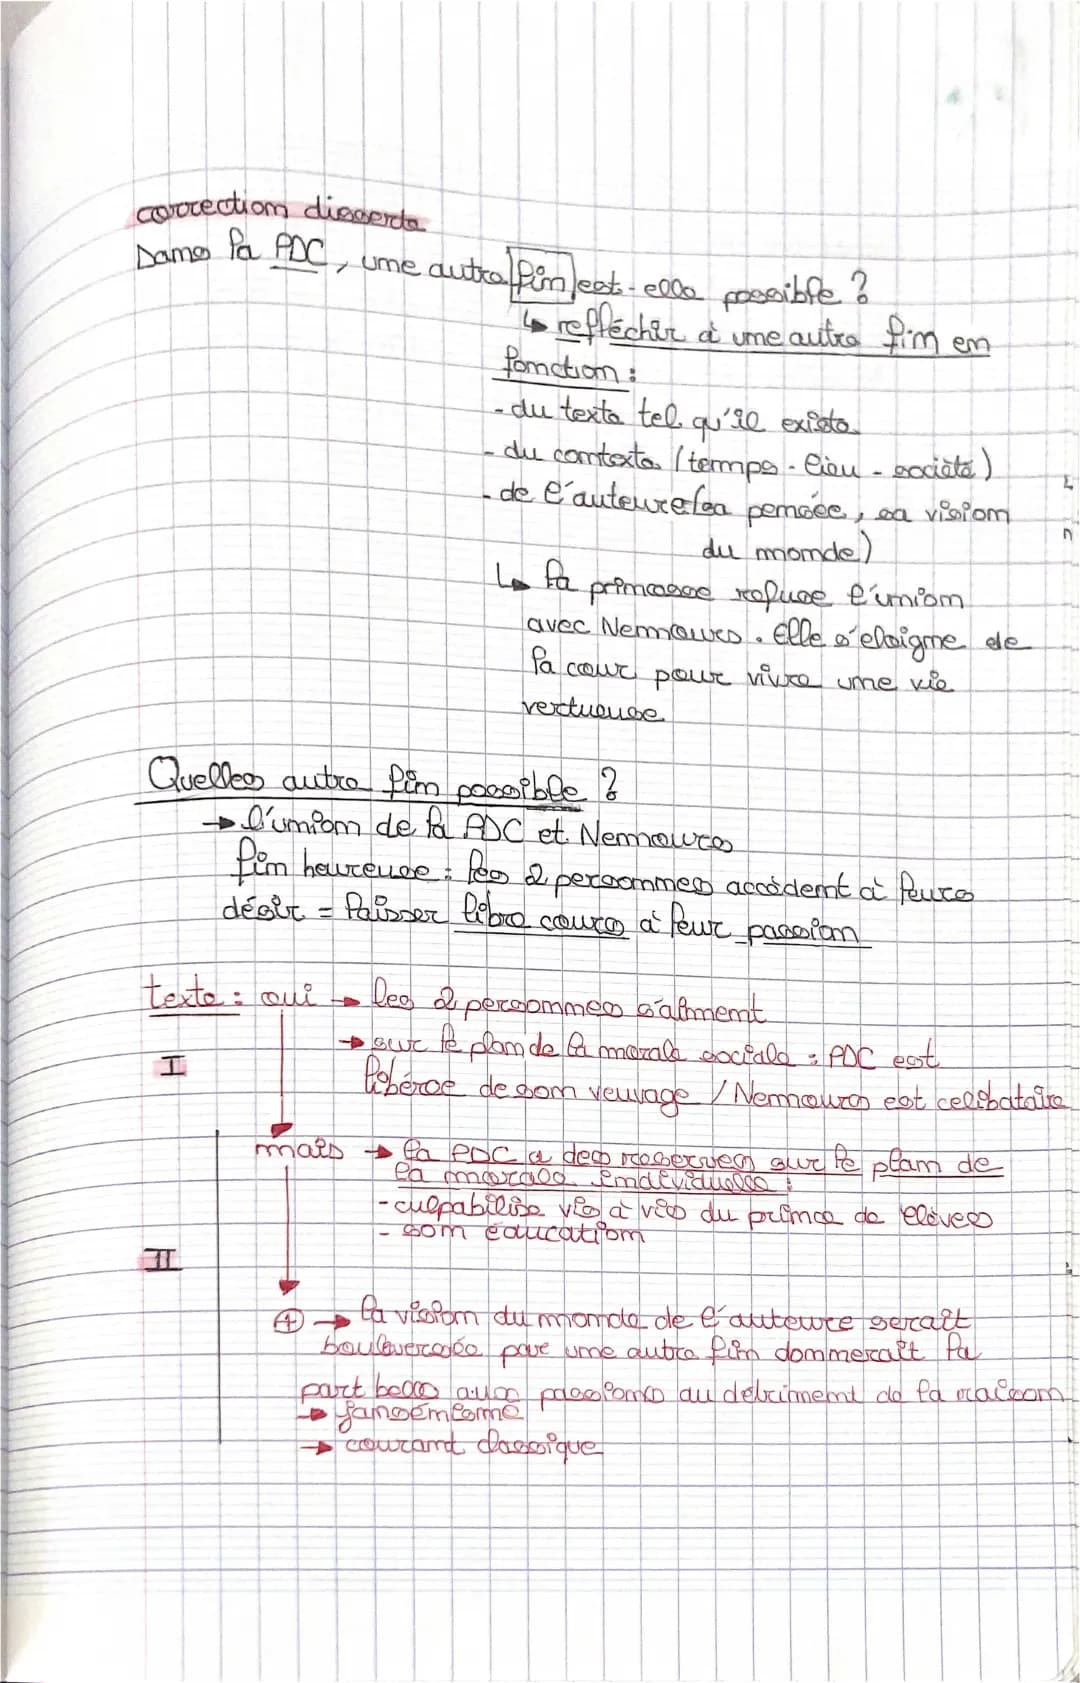 correction disserte
Dans la PDC, une autre fin est-elle possible ?
↳ refléchir à une autre fin en
fonction :
- du texte tel qu'il existe
- du contexte (temps - lieu - société)
- de l'auteure (sa pensée, sa vision
du monde)
↳ la princesse refuse l'union
avec Nemours. Elle s'eloigne de
la cour pour vivre une vie
vertueuse
Quelles autre fin possible ?
→ l'union de la PDC et Nemours
fin heureuse : les 2 personnes accèdent à leurs
désir = laisser libre cours à leur passion
texte : oui → les 2 personnes s'aiment
→ sur le plan de la morale sociale : PDC est
I
libérée de son veuvage / Nemours est celibataire
mais → la PDC a des réserves sur le plan de
la morale individuelle :
- culpabilise vis à vis du prince de Clèves
- son éducation
II
④ → la vision du monde de l'auteure serait
bouleversée par une autre fin donnerait la
part belle aux passions au détriment de la raison
→ jansénisme
→ courant classique